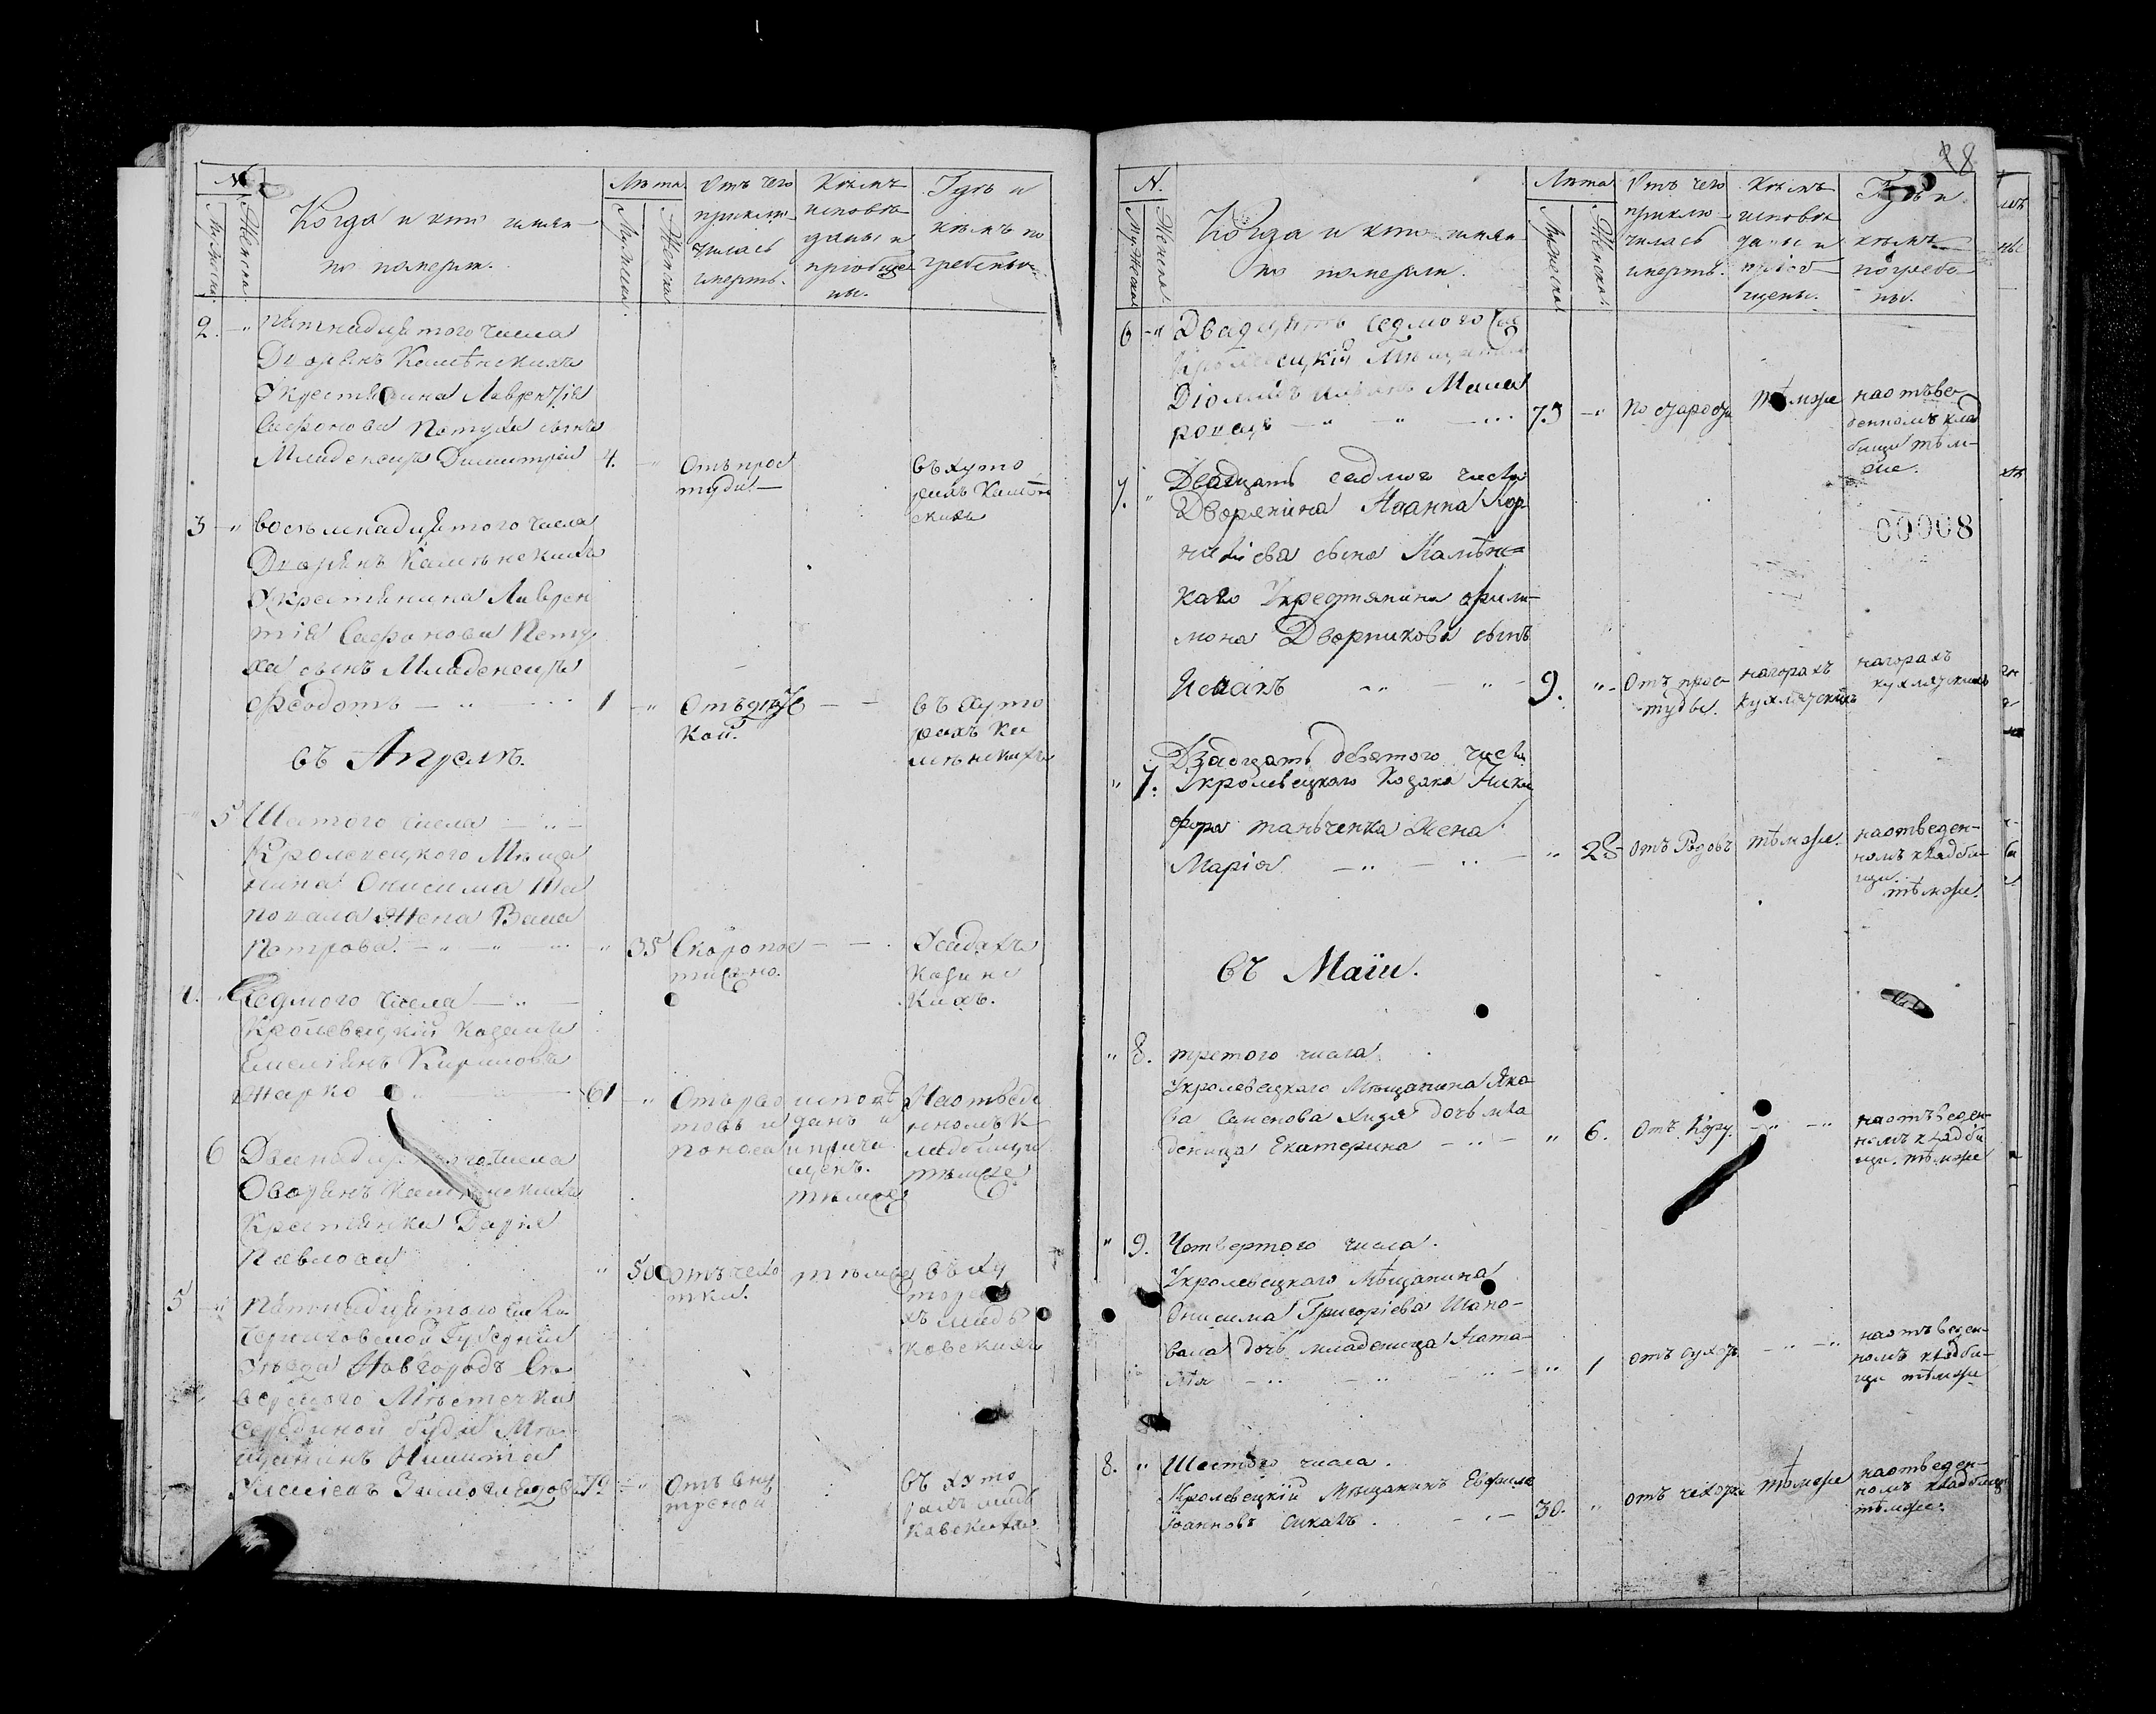 №
Мужеска.
Женска.
Когда и кто имян-
но померли.
Лѣта.
Мужеска.
Женска.
Отъ чего
приклю-
чилась
смерть.
Кѣмъ
исповѣ-
даны и
приобще-
ны.
Гдѣ и
кѣмъ по
гребены.
2. - "
пятнадцятого числа
Дворянъ Камѣнскихъ
Укрестянина Лаврентія
Сафонова Петуха сынъ
Младенецъ Димитрій
4. - "
Отъ прос
туди. -
въ хуто
рахъ Камѣн
скихъ
3 - "
восѣмнадцятого числа
Дворянъ Камѣнскихъ
Укрестянина Лаврен
тія Сафонова Пету
ха сынъ Младенецъ
Феодотъ
1 - "
въ хуто
рахъ Ка
мѣнскихъ
въ Апрелѣ.
- " 5
Шестого числа
Кролевецкого Мѣща
нина Онисима Ша
повала Жена Васа
Петрова.
" 35
Скоропос
тижно.
Усадахъ
Кихъ.
4. "
Седмого числа
Кролевецкій козакъ
Емеліянъ Кириловъ
Жарко
61 - "
поноса
исповѣ
данъ и
прича
щенъ.
тѣмже
Наотведе
нномъ К
ладбищи
тѣмже
6
Двенадцятого числа
Дворянъ Камѣнскихъ
Крестянка Дарія
Павлова
" 50
отъ чехо
тки.
тѣмже
въ ху
торах
5 - "
Пятнадцятого числа
Черниговской Губерніи
Уѣзда Новгородъ Сѣ
верского Мѣстечка
Серединой буди Мѣ-
щанинъ Никита
79 - "
Отъ вну
треной
въ хуто
рахъ
N.
Мужеска
Женска.
Когда и кто имян-
но померли.
Лѣта
Мужеска
Женска.
Отъ чего
приклю-
чилась
смерть.
Кѣмъ
исповѣ
даны и
приоб-
щены.
Гдѣ и
кѣмъ
погребе-
ны.
6 - "
Двадцять седмого
Кролевецкій Мѣщанинъ
75 - "
По старости
тѣмже
наотъве-
денномъ клад
бищи тѣм-
же.
7. "
Двадцать седмого числа
Дворянина Іоанна Кор
нилиева сына Камѣн=
каго Укрестянина Фили-
мона Дворникова сынъ
Исаакъ
9. "
Отъ прос-
туды.
нагорахъ
нагорахъ
00008
" 7.
Двадцать девятого числа
Укролевецкого Козака Ники
фора таньченка Жена
Марія
" 28
отъ Родовъ
тѣмже.
наотведен-
номъ кладби-
щи
тѣмже.
въ Маіи.
" 8.
третого числа.
Укролевецкого Мѣщанина Яко-
ва Семенова дочь мла
деница Екатерина
" 6.
отъ Кору.
наотъведен-
номъ кладби
щи. тѣмже
" 9.
Четвертого числа.
Укролевецкого Мѣщанина
Онисима Григоріева Шапо-
вала дочь младеница Ната-
лія
" 1
отъ сухотъ
наотъведен-
номъ кладби-
щи тѣмже
8. "
Шестого числа.
Кролевецкій Мѣщанинъ
Іоанновъ
30. "
отъ чехотки
тѣмже
наотведен-
номъ кладбищи
тѣмже.